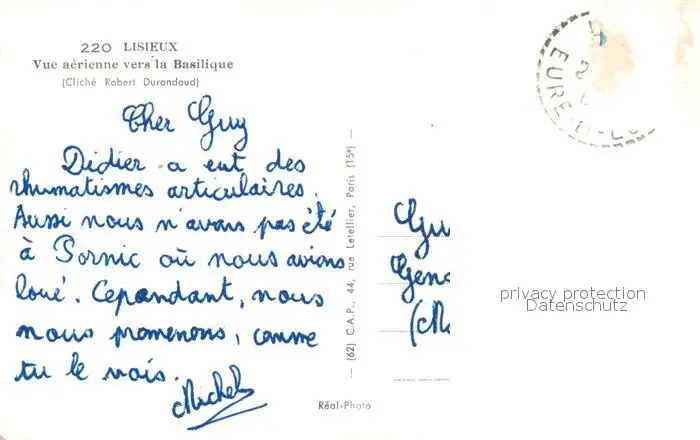 220 LISIEUX
Vue aérienne vers la Basilique
(Cliché Robert Durandaud)
Cher Guy
Didier a eut des
rhumatismes articulaires.
Aussi nous n'avons pas été
à Pornic où nous avions
loué. Cependant, nous
nous promenons, comme
tu le vois.
Michel
— (62) C.A.P., 44, rue Letellier, Paris (15e) —
Réal-Photo
EURE-
Gu
Gen
(M
privacy protection
Datenschutz